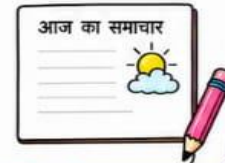 आज का समाचार